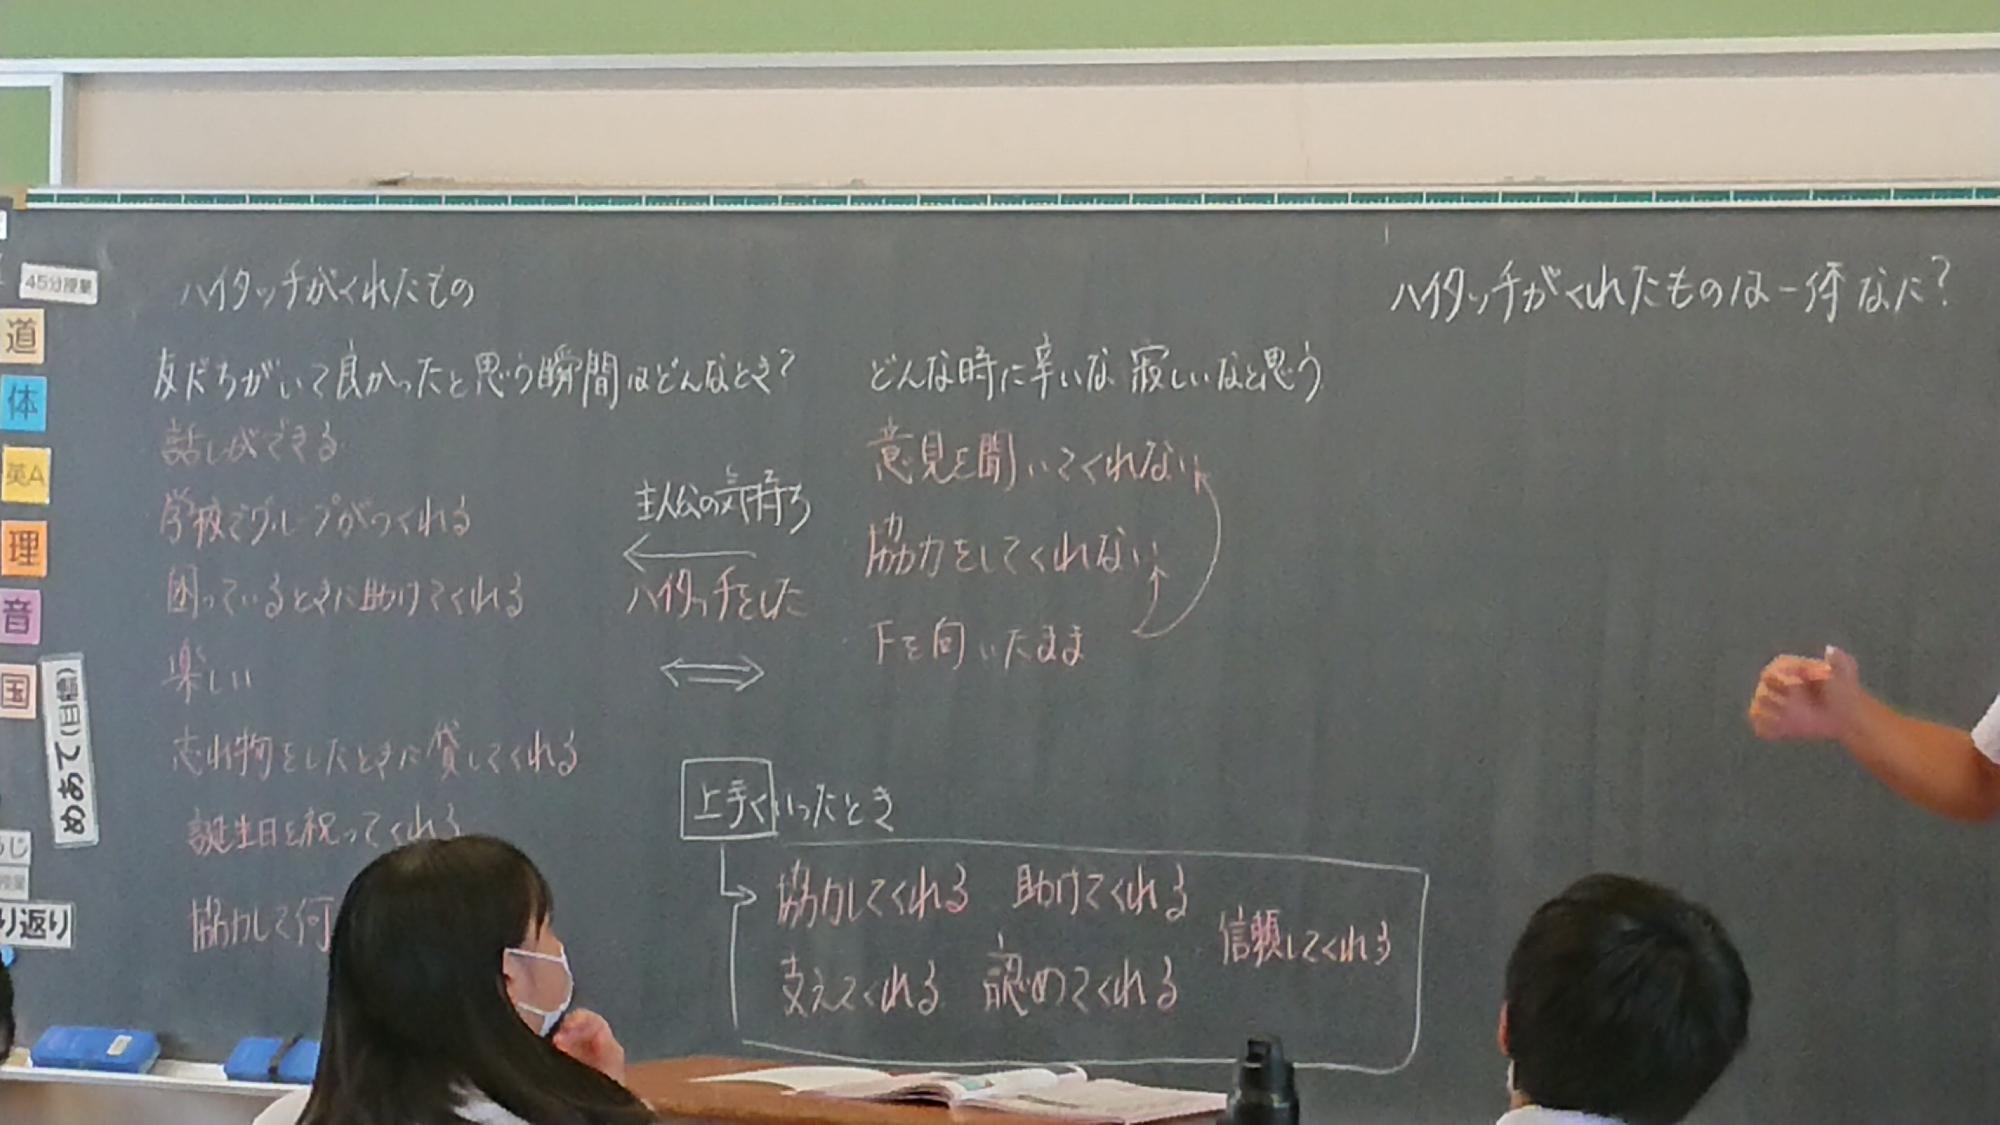 45分授業
道
体
英A
理
音
国
めあて(目標)
り返り
ハイタッチがくれたもの
友だちがいて良かったと思う瞬間はどんなとき?
話しができる
学校でグループがつくれる
困っているときに助けてくれる
楽しい
忘れ物をしたときに貸してくれる
誕生日を祝ってくれる
協力して何
主人公の気持ち
ハイタッチをした
どんな時に辛いな 寂しいなと思う
意見を聞いてくれない
協力をしてくれない
下を向いたまま
上手くいったとき
協力してくれる 助けてくれる
信頼してくれる
支えてくれる 認めてくれる
ハイタッチがくれたものは一体なに?